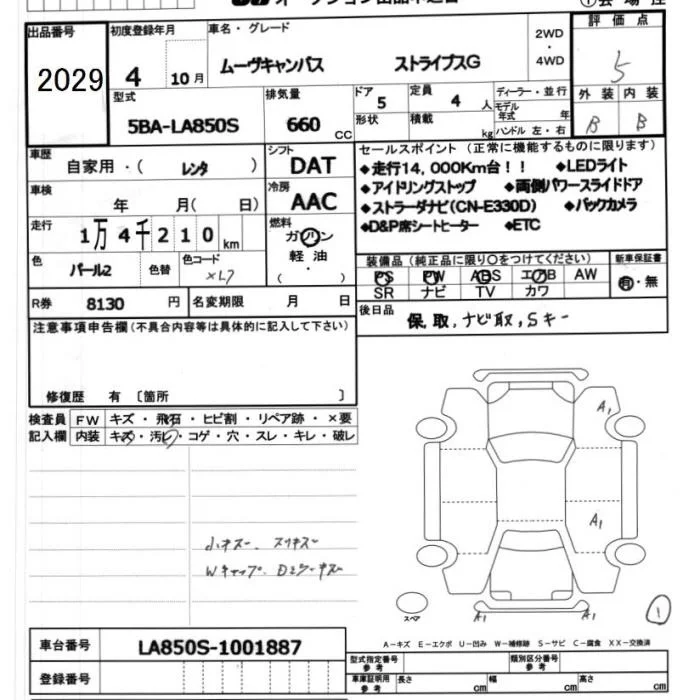 出品番号 初度登録年月 車名・グレード 2WD・4WD 評価点
2029 4 10月 ムーヴキャンバス ストライプスG 5
型式 排気量 ドア 5 定員 4人 ディーラー・並行 外装 内装
5BA-LA850S 660 CC 形状 積載 kg モデル年式 年 ハンドル 左・右 B B
車歴 自家用・( レンタ ) シフト DAT セールスポイント (正常に機能するものに限ります)
◆走行14,000Km台!! ◆LEDライト
車検 年 月( 日) 冷房 AAC ◆アイドリングストップ ◆両側パワースライドドア
◆ストラーダナビ(CN-E330D) ◆バックカメラ
走行 1万4千210km 燃料 ガソリン 軽油 ・( ) ◆D&P席シートヒーター ◆ETC
色 パール2 色替 色コード 装備品(純正品に限り○をつけてください) 新車保証書
PS PW ABS エアB AW 有・無
SR ナビ TV カワ
R券 8130円 名変期限 月 日 後日品
保,取,ナビ取,Sキー
注意事項申告欄(不具合内容等は具体的に記入して下さい)
修復歴 有 〔箇所 〕
検査員 FW キズ・飛石・ヒビ割・リペア跡・×要
記入欄 内装 キズ・汚レ・コゲ・穴・スレ・キレ・破レ
A1
A1
小キズー、スリキズー
Wキャップ、
スペア A1 A1 1
A-キズ E-エクボ U-凹み W-補修跡 S-サビ C-腐食 XX-交換済
車台番号 LA850S-1001887 型式指定番号 参考 類別区分番号 参考
登録番号 車庫証明用 参考 長さ cm 幅 cm 高さ cm